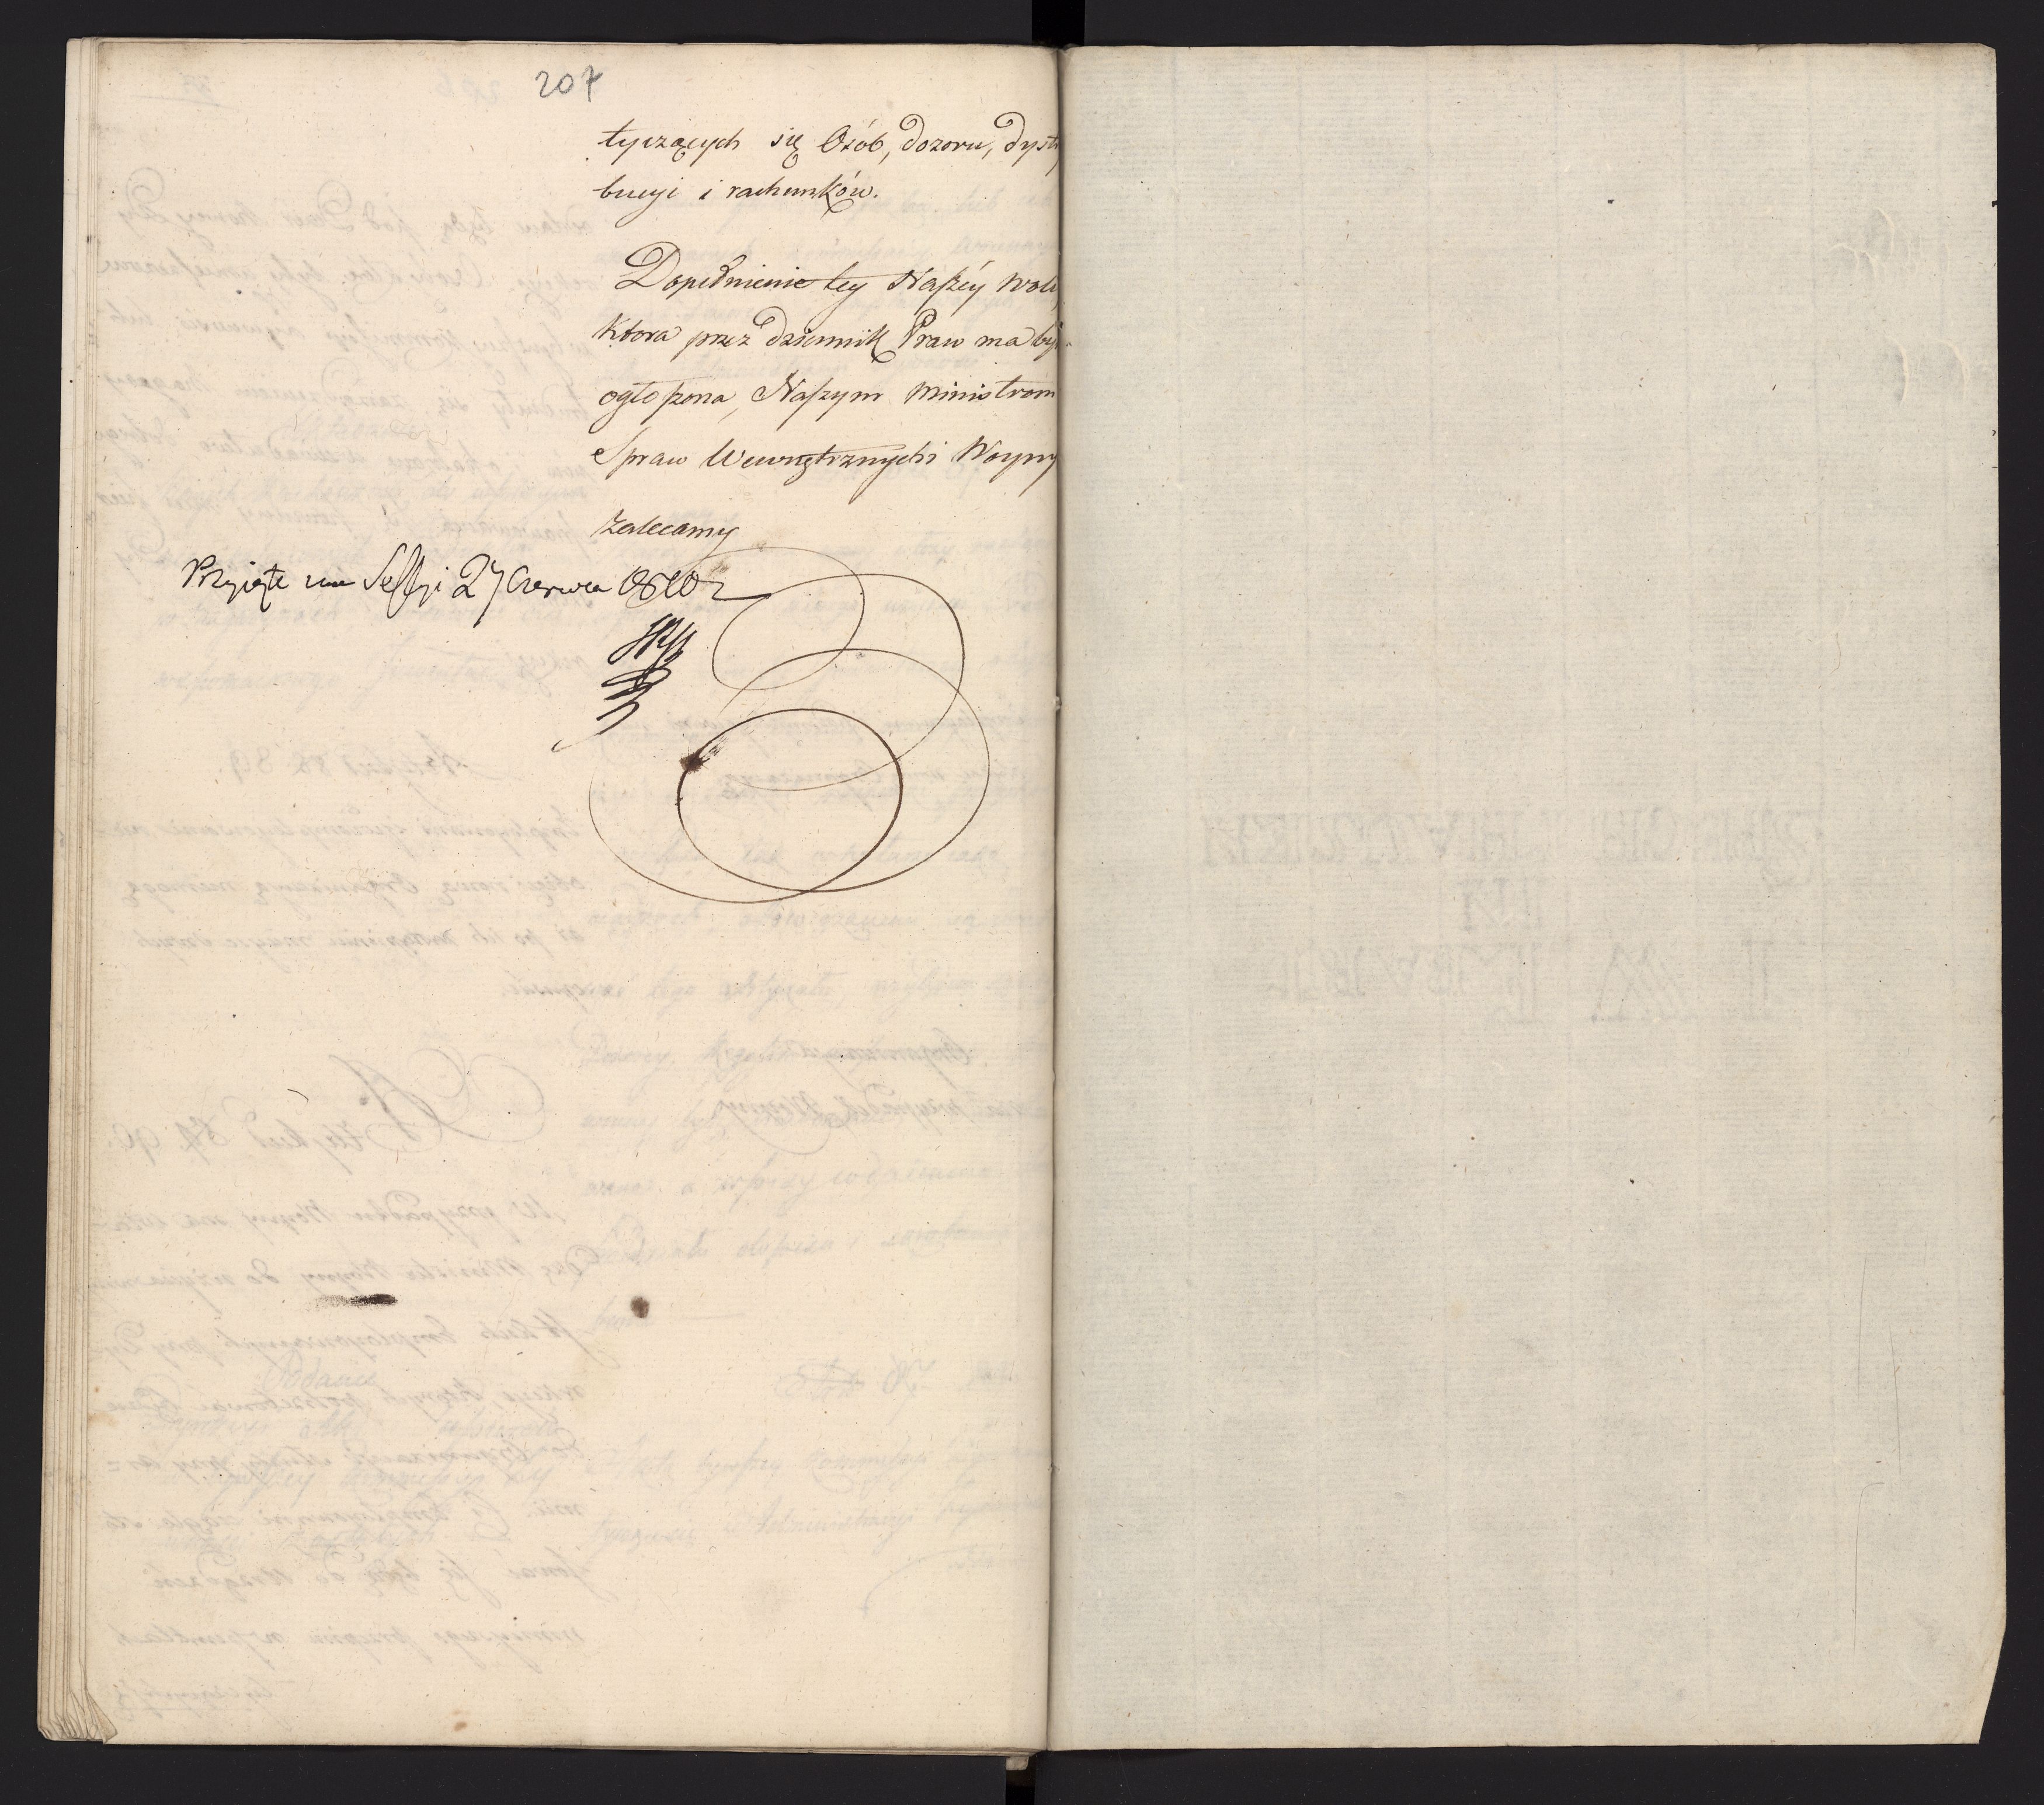 207
tyczących się Osób, dozoru, dystr
bucyi i rachunków.
Dopełnienie tey Naszéy woli
Ktora przez dziennik Praw ma być
ogłoszona, Naszym Ministrom
Spraw Wewnętrznych i Woyny
zalecamy
Przyięte na Sessyi 27 Czerwca 1810 r